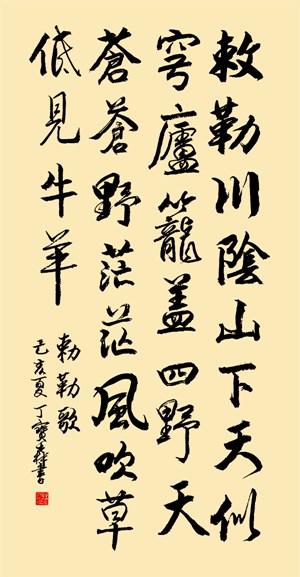 敕勒川陰山下天似
穹廬籠盖四野天
蒼蒼野茫茫風吹草
低見牛羊
勅勒歌
己亥夏丁寶森書